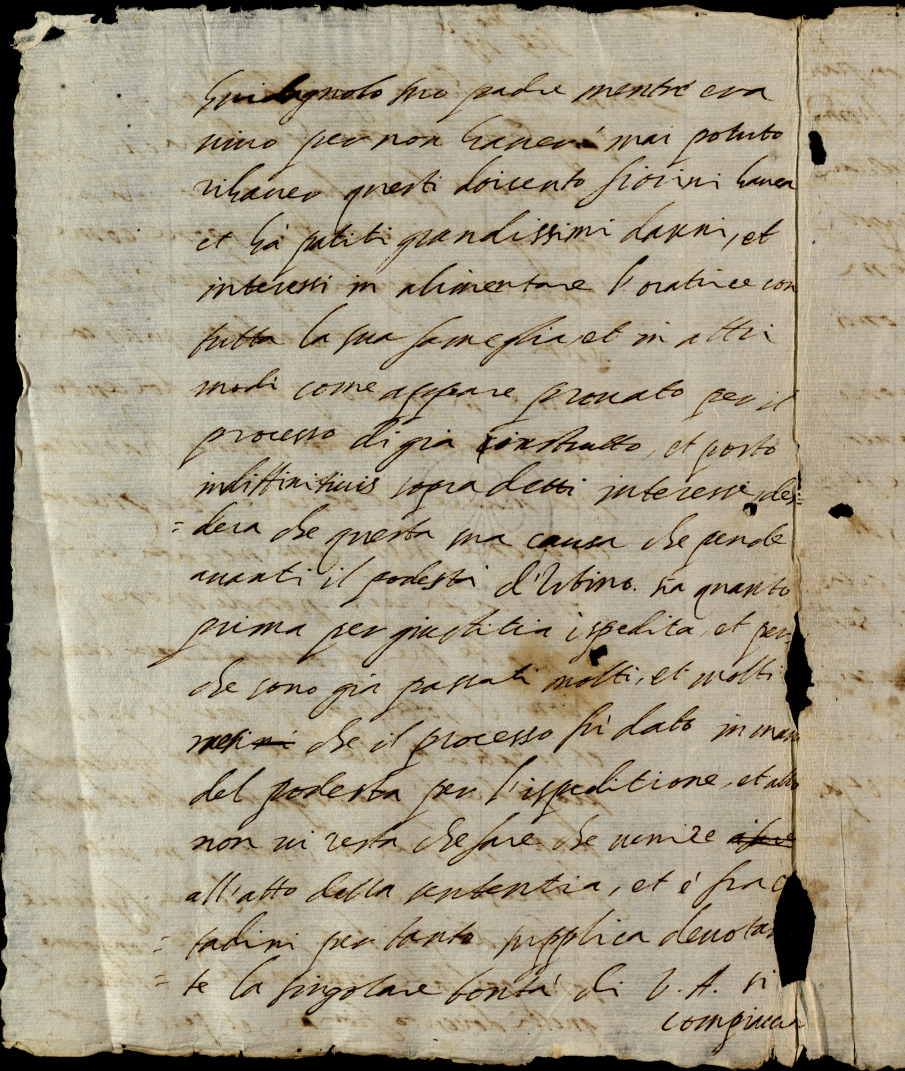 Guidagnolo suo padre mentre era
vivo per non haver mai potuto
rihaver questi doicento fiorini havea
et hà patiti grandissimi danni, et
interessi in alimentare l'oratrice con
tutta la sua fameglia, et in altri
modi come appare provato per il
processo di già construtto, et posto
indiffinitivis sopra detti interessi, desi=
=dera che questa sua causa che pende
avanti il podestà d'Urbino. sia quanto
prima per giustitia ispedita, et per
che sono già passati molti, et molti
mesi che il processo fù dato in mano
del podestà per l'ispeditione, et altro
non vi resta che fare che venire
all'atto della sententia, et è fra
=tadini per tanto supplica devota
=te la singolare bontà di V. A. si
compiaccia